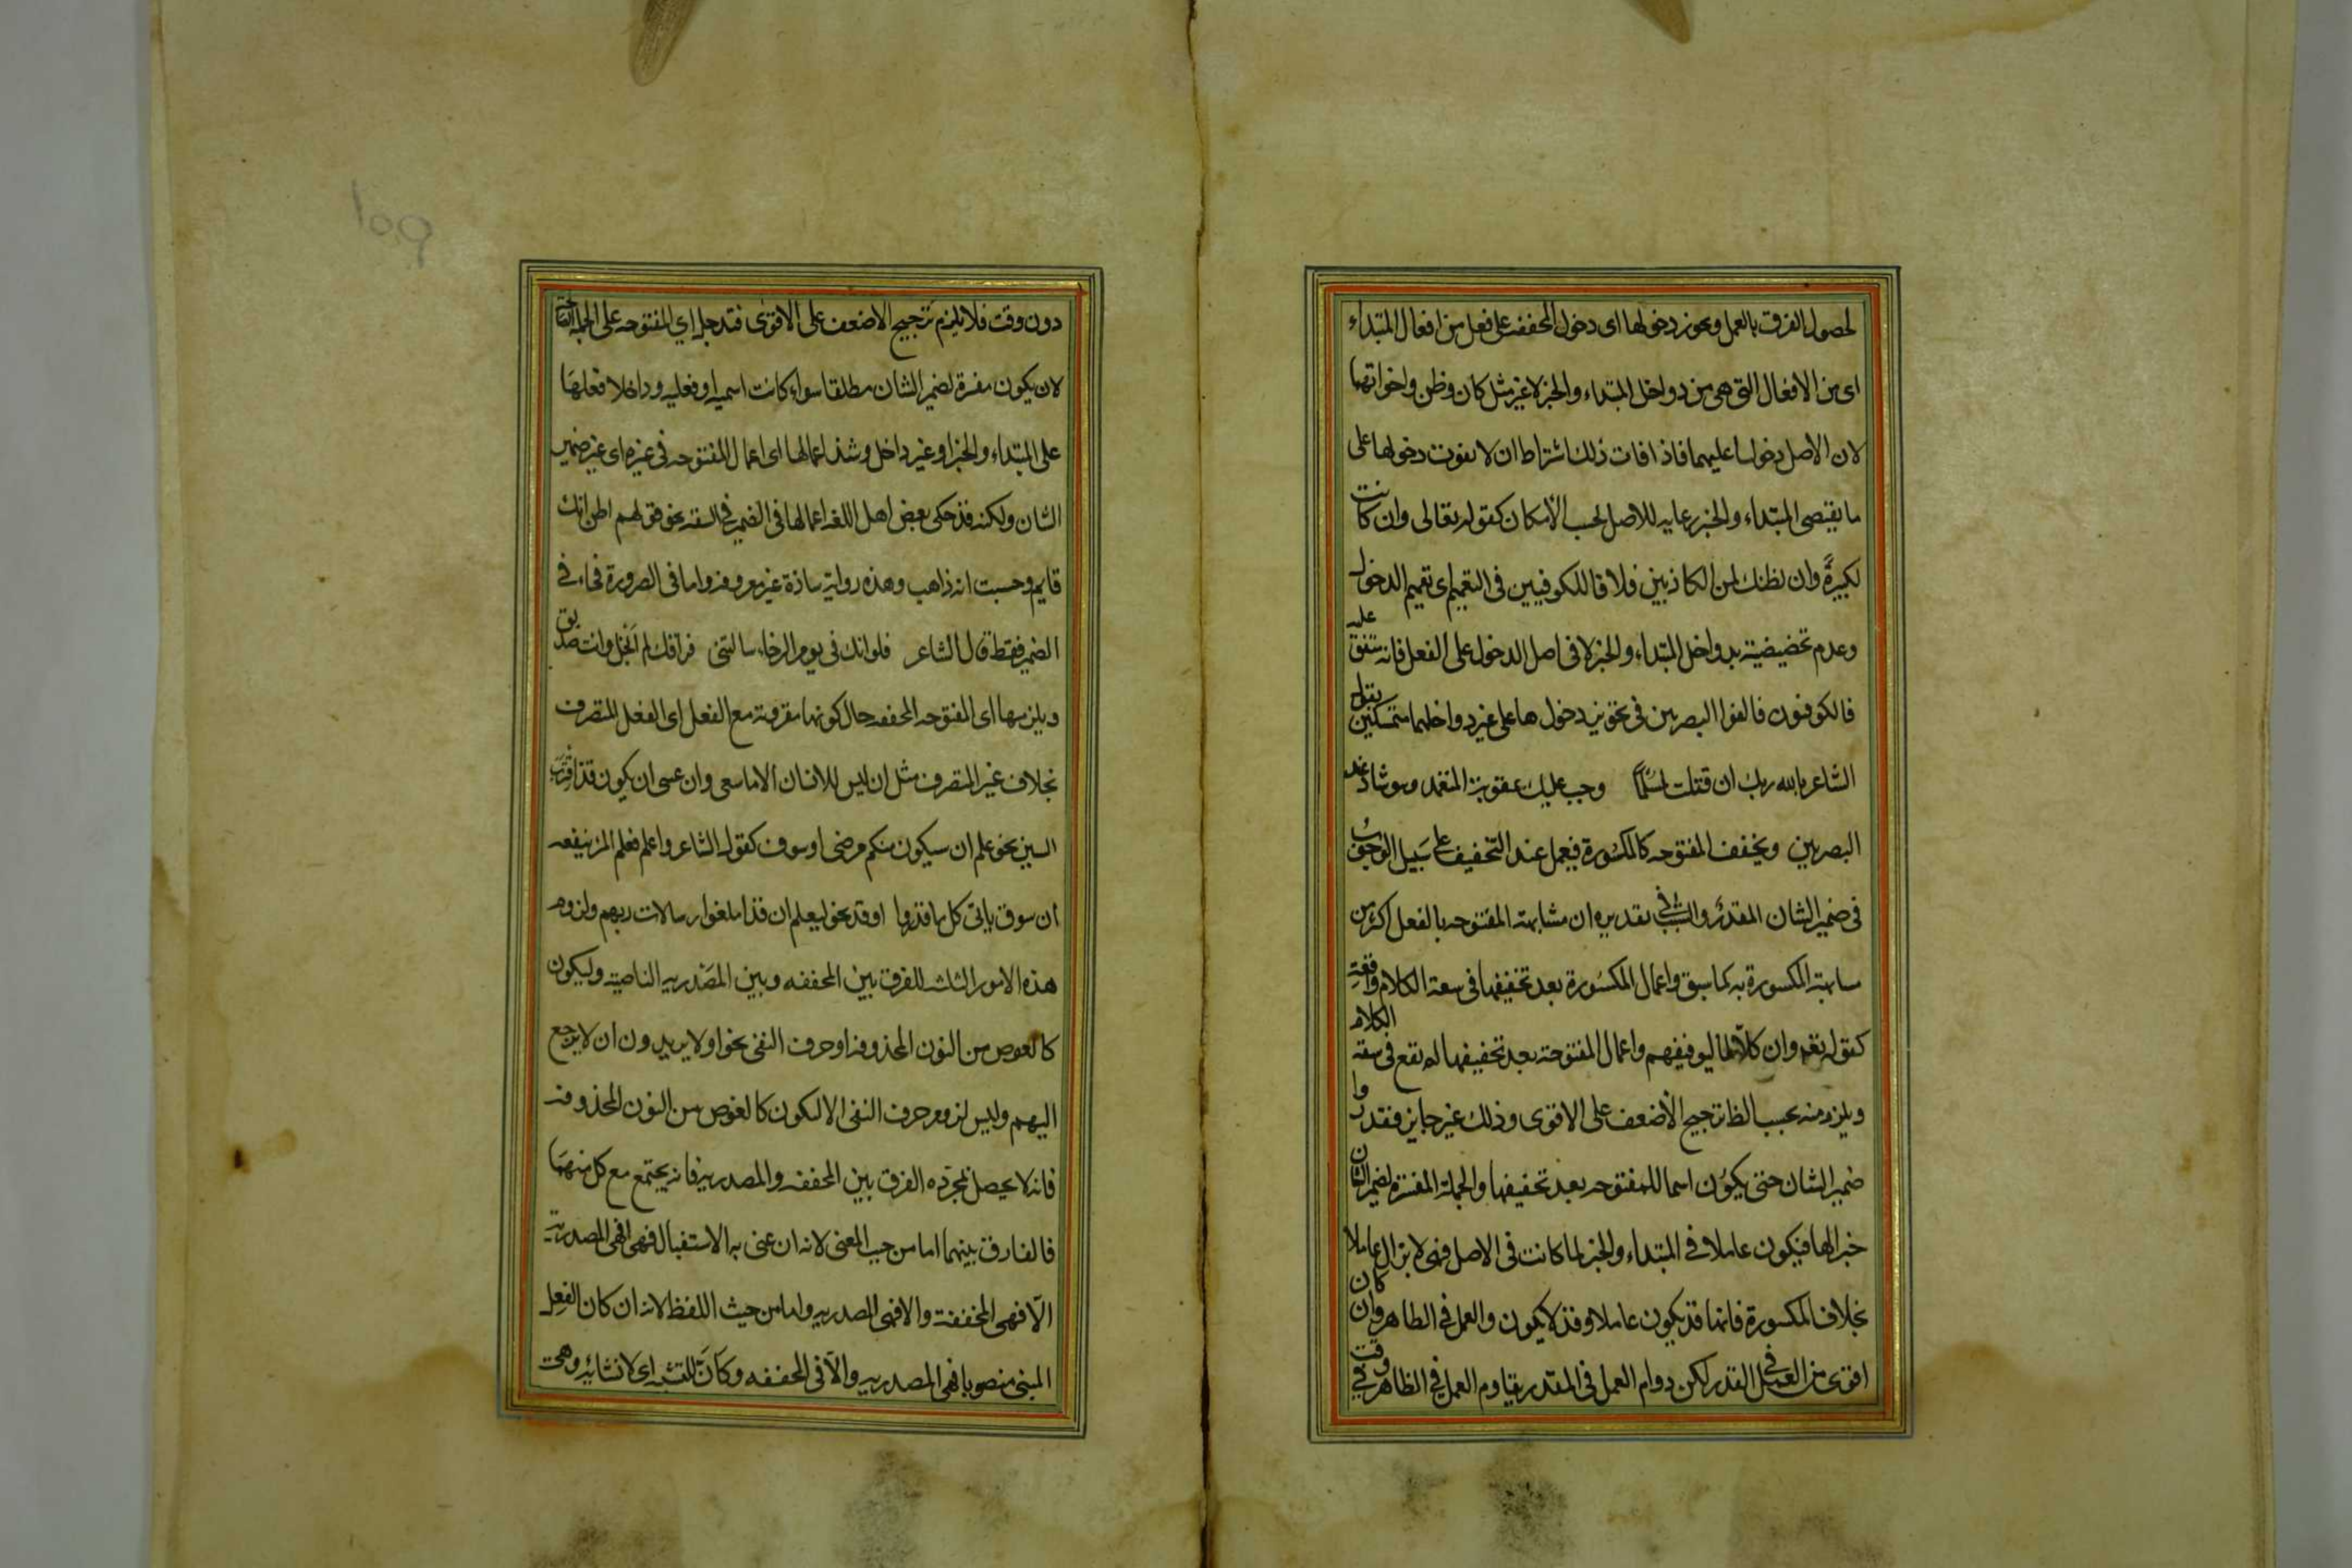 لحصول الفرق بالعمل ويجوز دخولها اى دخول المخففه على فعل من افعال المبتداء
اى من الافعال التى هى من دواخل المبتداء والخبر لا غير مثل كان وظن واخواتهما
لان الاصل دخولها عليهما فاذا فات ذلك اشتراط ان لا يفوت دخولها على
ما يقتضى المبتداء والخبر رعايه للاصل بحسب الأمكان كقوله تعالى وان كانت
لكبيرةً وان نظنك لمن الكاذبين خلافا للكوفيين فى التعميم اى تعميم الدخول
وعدم تخصيصيته بدواخل المبتداء والخبر لا فى اصل الدخول على الفعل فانه متفق عليه
فالكوفيون خالفوا البصريين فى تجويز دخول ها على غير دواخلهما متمسكين بقول
الشاعر بالله ربك ان قتلت لمسلمًا وجب عليك عقوبة المتعمد وهو شاذ عند
البصريين ويخفف المفتوحه كالمكسورة فيعمل عند التخفيف على سبيل الوجوب
فى ضمير الشان المقدر والسبب فى تقديره ان مشابهة المفتوحه بالفعل اكثر من
مشابهة المكسورة به كما سبق واعمال المكسورة بعد تخفيفها فى سعة الكلام واقعة
كقوله تعم وان كلًّا لما ليوفينهم واعمال المفتوحة بعد تخفيفها لم تقع فى سعة الكلام
ويلزم منه بحسب الظا ترجيح الأضعف على الاقوى وذلك غير جايز فقدروا
ضمير الشان حتى يكون اسما للمفتوحه بعد تخفيفها والجملة المفسرة لضمير الشان
خبرا لها فيكون عاملا فى المبتداء والخبر لما كانت فى الاصل فهى لا يزال عاملا
بخلاف المكسورة فانها قد يكون عاملا وقد لا يكون والعمل فى الظاهر وان كان
اقوى من العمل فى المقدر لكن دوام العمل فى المقدر يقاوم العمل فى الظاهر فى وقت
١٥٩
دون وقت فلا يلزم ترجيح الاضعف على الاقوى فتدخل اي المفتوحه على الجملة
لان يكون مفسرة لضمير الشان مطلقا سواء كانت اسميه او فعليه وداخلا فعلها
على المبتداء والخبر او غير داخل وشذ اعمالها اى اعمال المفتوحه فى غيره اى غير ضمير
الشان ولكنه قد حكى بعض اهل اللغه اعمالها فى الضمير فى السعة نحو قولهم اظن انك
قايم وحسبت انه ذاهب وهذه رواية شاذة غير معروفه واما فى الضرورة فجاء فى
الضمير فقط قال الشاعر فلو انك فى يوم الرخاء سالتنى فراقك لم ابخل وانت صديق
ويلزمها اى المفتوحه المخففه حال كونها مقرونة مع الفعل اى الفعل المتصرف
بخلاف غير المتصرف مثل ان ليس للانسان الا ما سعى وان عسى ان يكون قد اقترب
السين نحو علم ان سيكون منكم مرضى او سوف كقول الشاعر واعلم فعلم المرء ينفعه
أن سوف ياتى كل ما قدرا او قد نحو ليعلم ان قد ابلغوا رسالات ربهم ولزوم
هذه الامور الثلثه للفرق بين المخففه وبين المصدريه الناصبة وليكون
كالعوض من النون المحذوفه او حرف النفى نحو اولا يريدون ان لا يرجع
اليهم وليس لزوم حرف النفى الا ليكون كالعوض من النون المحذوفه
فانه لا يحصل بمجرّده الفرق بين المخففه والمصدريه فانه يجتمع مع كل منهما
فالفارق بينهما اما من حيث المعنى لانه ان عنى به الاستقبال فهى المصدرية
الا فهى المخففة والا فهى المصدريه واما من حيث اللفظ لانه ان كان الفعل
المبنى منصوبا فهى المصدريه والا فى المخففه وكانَّ للتشبه اى لانشائه وهى